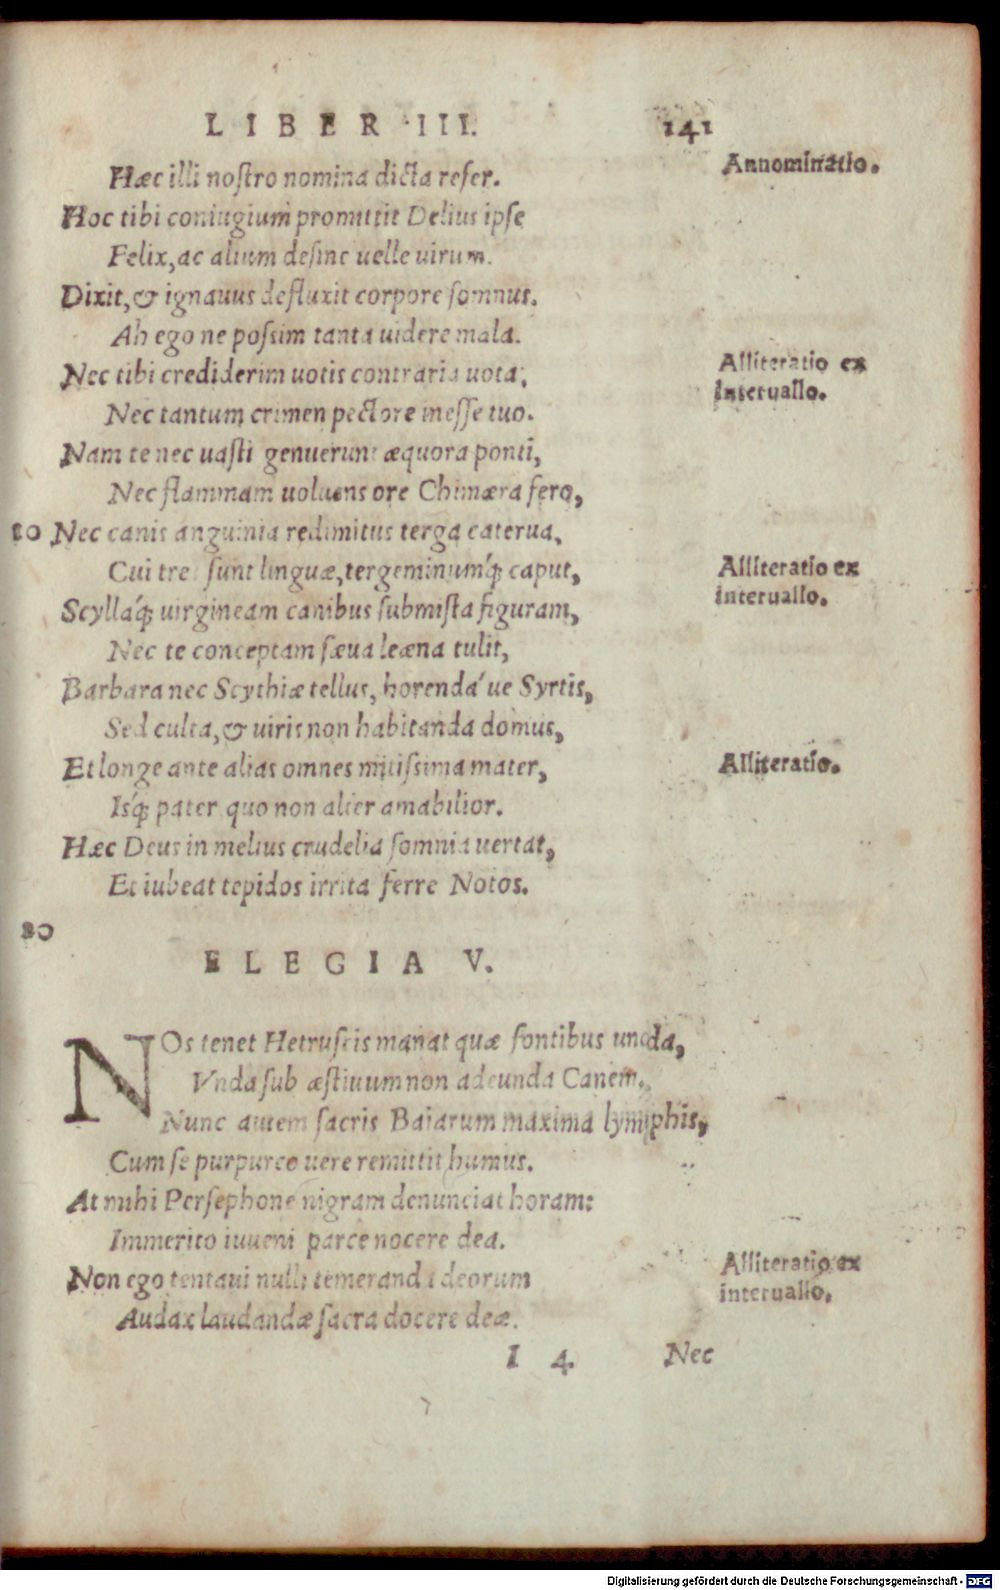 LIBER III. 141
Hæc illi noſtro nomina dicta refer. Annominatio.
Hoc tibi coniugium promittit Delius ipſe
Felix, ac alium deſine uelle uirum.
Dixit, & ignauus defluxit corpore ſomnus.
Ah ego ne poſsim tanta uidere mala.
Nec tibi crediderim uotis contraria uota, Alliteratio ex
Nec tantum crimen pectore ineſſe tuo. interuallo.
Nam te nec uaſti genuerunt æquora ponti,
Nec flammam uoluens ore Chimæra fero,
Nec canis anguinia redimitus terga caterua,
Cui tres ſunt linguæ, tergeminumq́; caput, Alliteratio ex
Scyllaq́; uirgineam canibus ſubmiſta figuram, interuallo.
Nec te conceptam ſæua leæna tulit,
Barbara nec Scythiæ tellus, horenda ́ue Syrtis,
Sed culta, & uiris non habitanda domus,
Et longe ante alias omnes mitiſsima mater, Alliteratio.
Isq́; pater quo non alter amabilior.
Hæc Deus in melius crudelia ſomnia uertat,
Et iubeat tepidos irrita ferre Notos.
80
ELEGIA V.
NOs tenet Hetruſcis manat quæ fontibus unda,
Vnda ſub æſtiuum non adeunda Canem.
Nunc autem ſacris Baiarum maxima lymphis,
Cum ſe purpureo uere remittit humus.
At mihi Perſephone nigram denunciat horam:
Immerito iuueni parce nocere dea.
Non ego tentaui nulli temeranda deorum Alliteratio ex
Audax laudandæ ſacra docere deæ. interuallo.
I 4 Nec
Digitalisierung gefördert durch die Deutsche Forschungsgemeinschaft - DFG